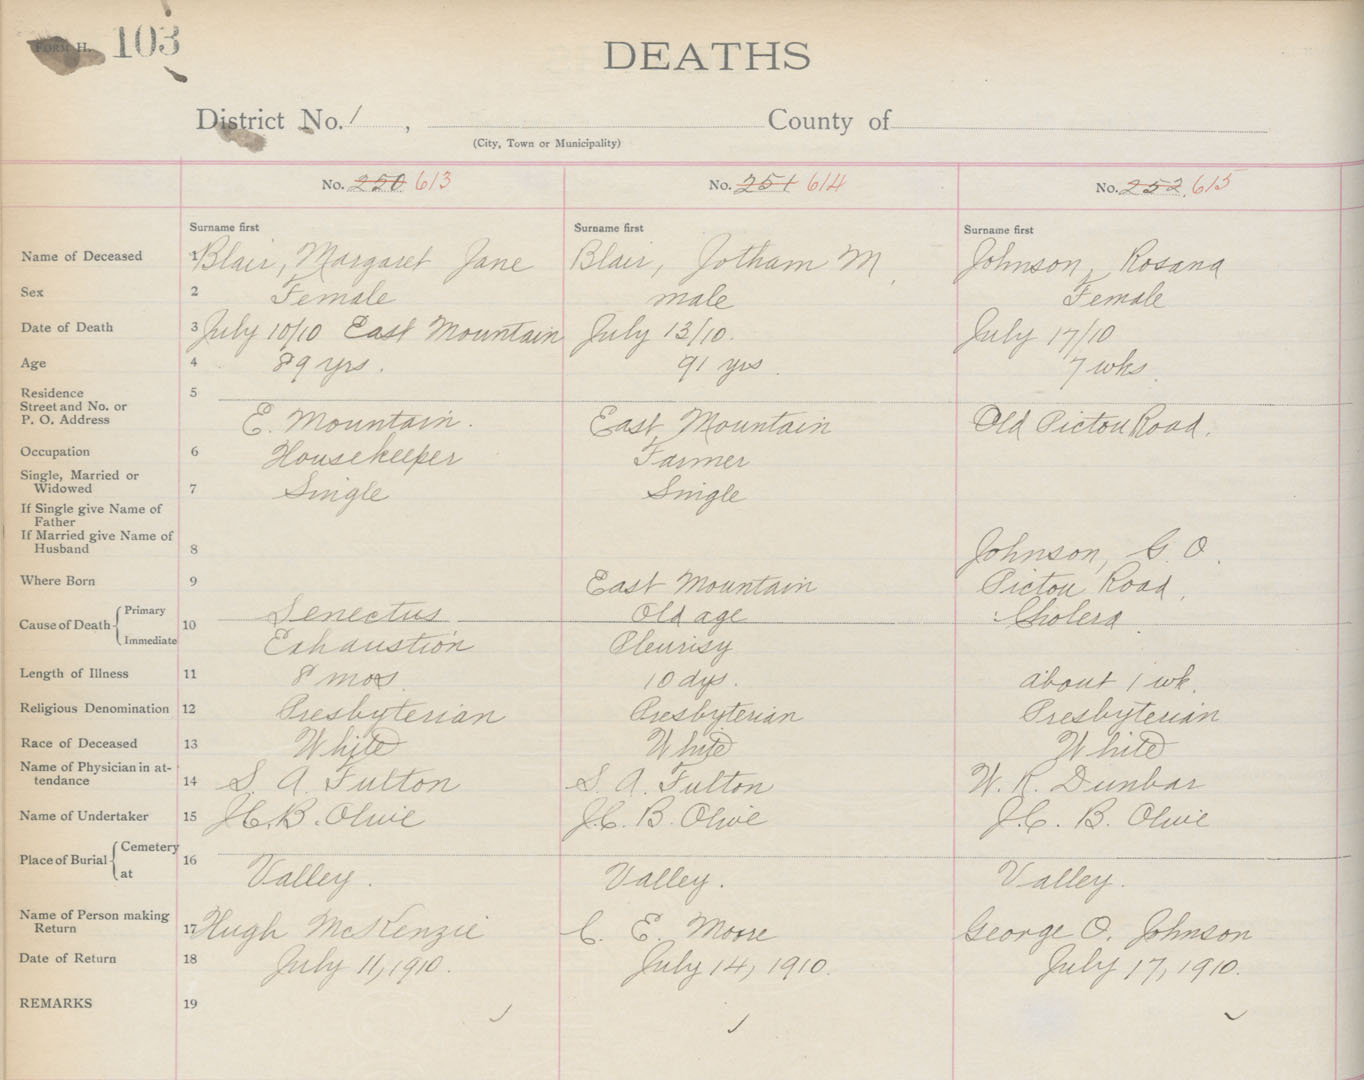 FORM H. 103
DEATHS
District No. 1 , County of
(City, Town or Municipality)
No. 250 613 No. 251 614 No. 252 615
Surname first Surname first Surname first
Name of Deceased 1 Blair, Margaret Jane Blair, Jotham M Johnson, Rosana
Sex 2 Female male Female
Date of Death 3 July 10/10 East Mountain July 13/10. July 17/10
Age 4 89 yrs. 91 yrs. 7 wks
Residence 5
Street and No. or
P. O. Address E. Mountain. East Mountain Old Pictou Road.
Occupation 6 Housekeeper Farmer
Single, Married or
Widowed 7 Single Single
If Single give Name of
Father
If Married give Name of
Husband 8 Johnson, G. O.
Where Born 9 East Mountain Pictou Road.
Cause of Death { Primary 10 Senectus Old age Cholera
Immediate Exhaustion Pleurisy
Length of Illness 11 8 mos. 10 dys. about 1 wk.
Religious Denomination 12 Presbyterian Presbyterian Presbyterian
Race of Deceased 13 White White White
Name of Physician in at-
tendance 14 S. A. Fulton S. A. Fulton W. R. Dunbar
Name of Undertaker 15 J.C.B. Olive J.C. B. Olive J.C. B. Olive
Place of Burial { Cemetery 16
at Valley. Valley. Valley.
Name of Person making
Return 17 Hugh McKenzie C. E. Moore George O. Johnson
Date of Return 18 July 11, 1910. July 14, 1910. July 17, 1910.
REMARKS 19